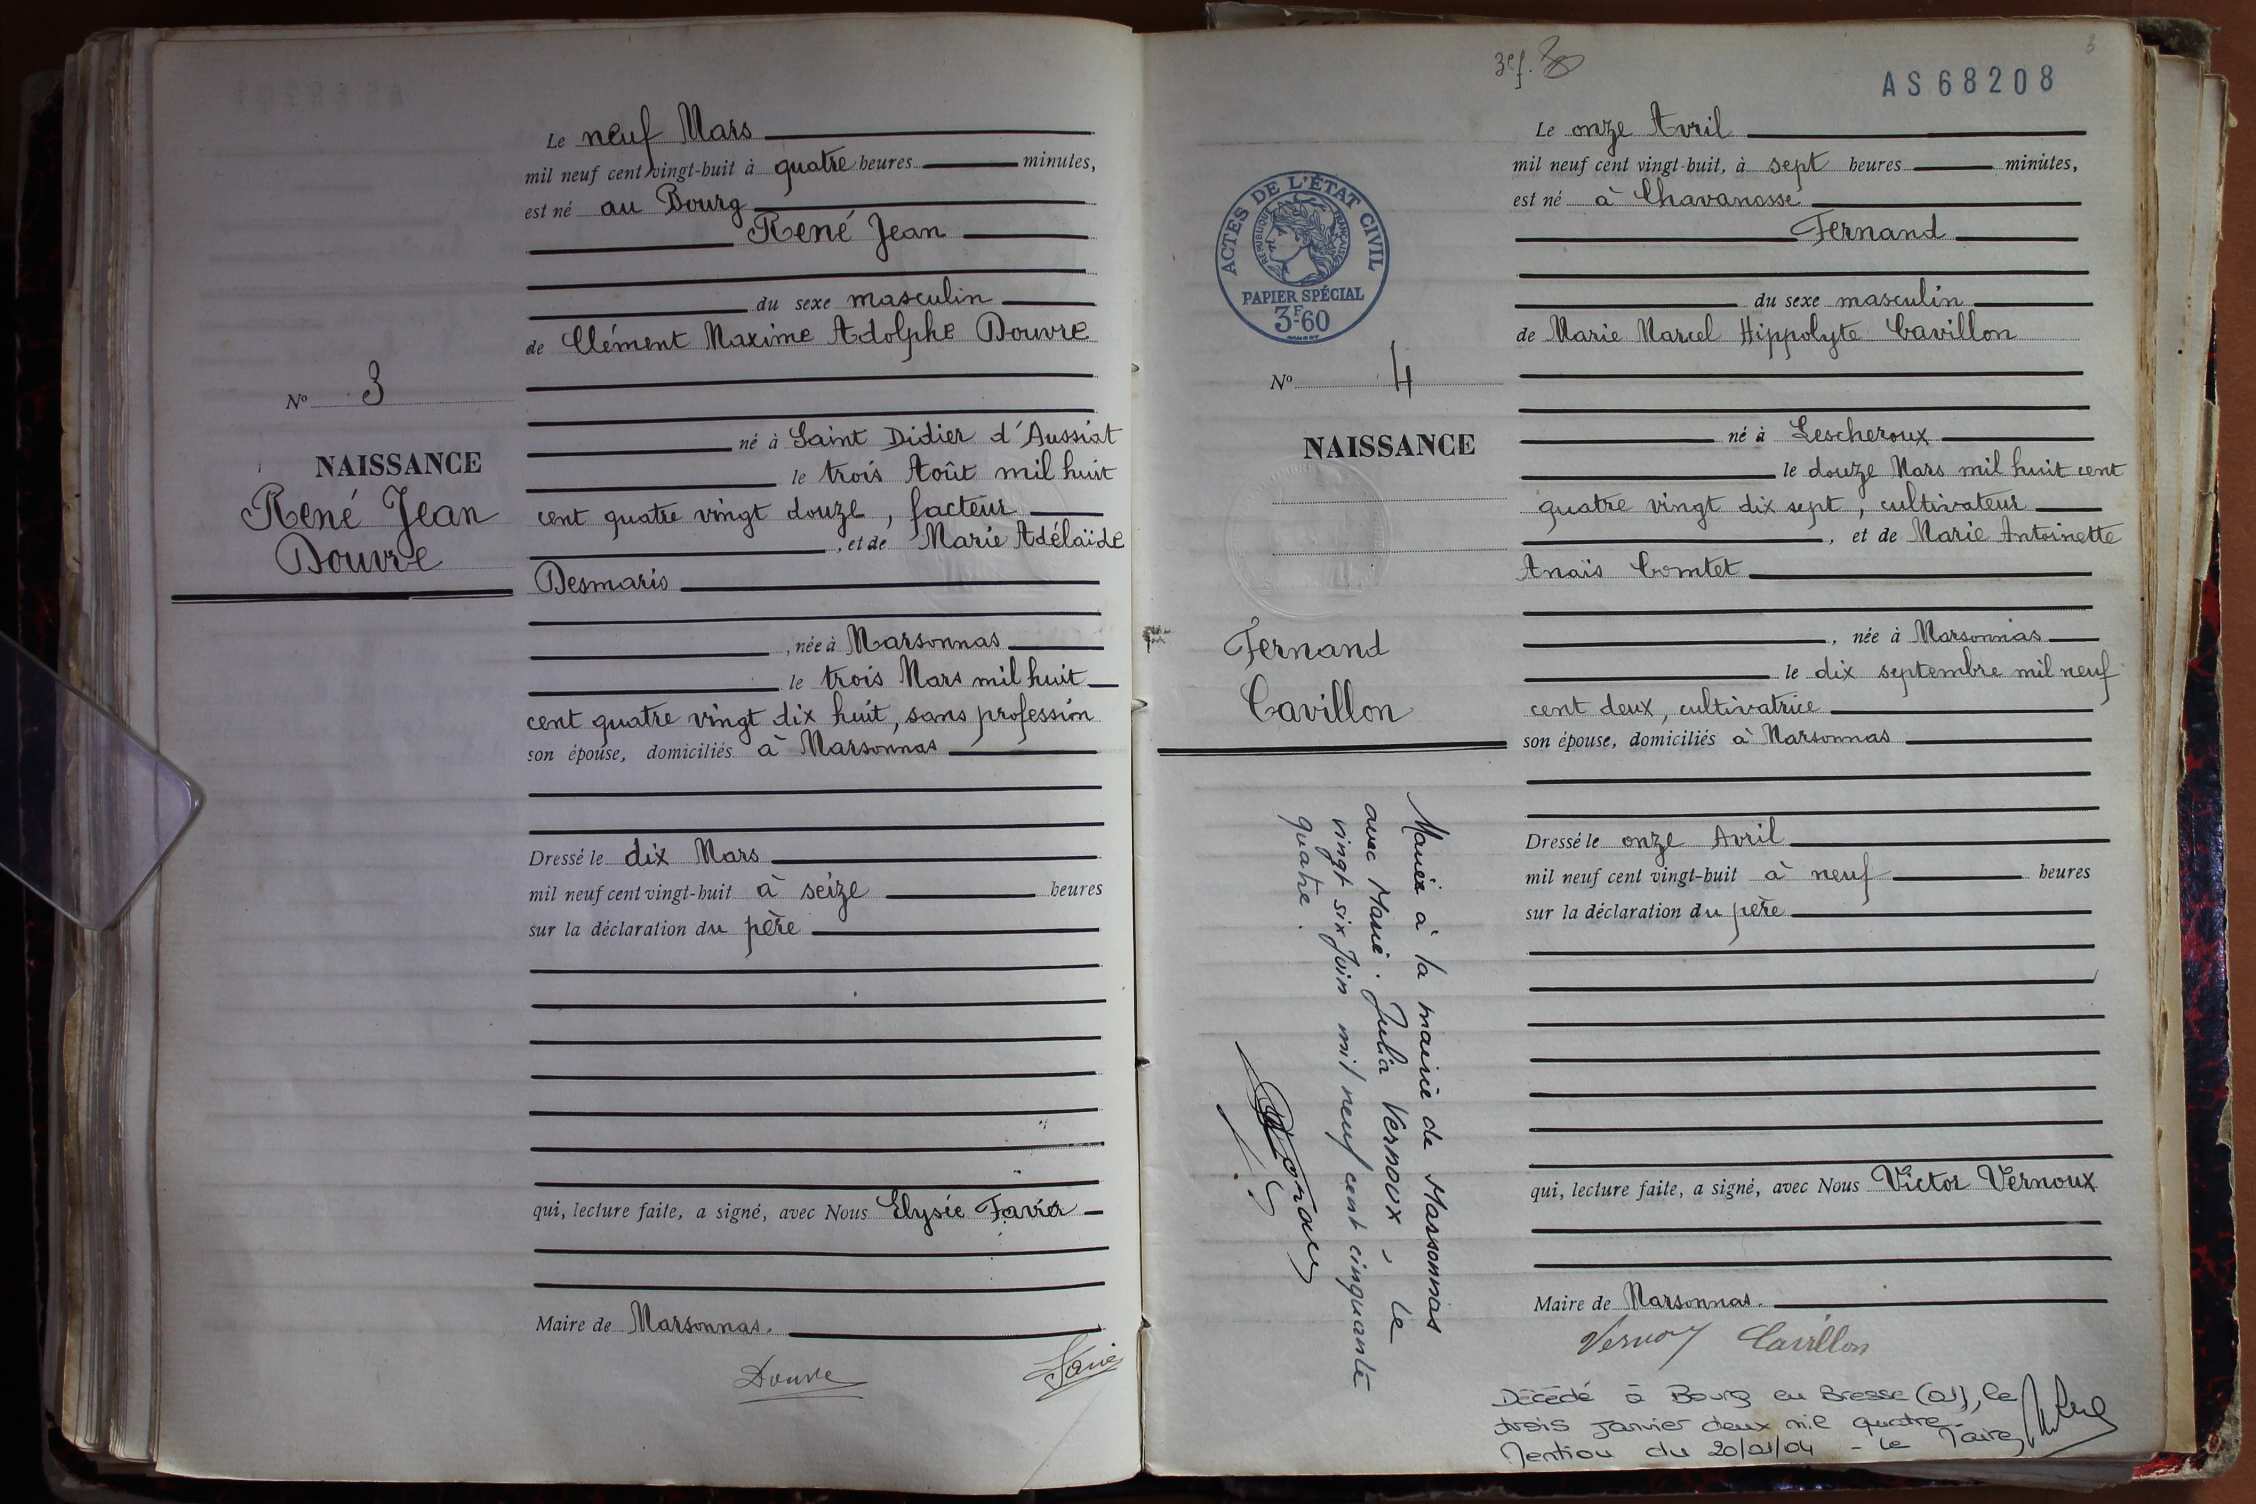 Le neuf Mars
mil neuf cent vingt-huit à quatre heures minutes,
est né au Bourg
René Jean
du sexe masculin
de Clément Maxime Adolphe Douvre
né à Saint Didier d'Aussiat
le trois Août mil huit
cent quatre vingt douze, facteur
, et de Marie Adélaïde
Desmaris
, née à Marsonnas
le trois Mars mil huit
cent quatre vingt dix huit, sans profession
son épouse, domiciliés à Marsonnas
Dressé le dix Mars
mil neuf cent vingt-huit à seize heures
sur la déclaration du père
qui, lecture faite, a signé, avec Nous Elysée Favier
Maire de Marsonnas.
Douvre
N° 3
NAISSANCE
René Jean
Douvre
3e f.
AS 68208
3
ACTES DE L'ÉTAT CIVIL
RÉPUBLIQUE FRANÇAISE
PAPIER SPÉCIAL
3F-60
N° 4
NAISSANCE
Fernand
Cavillon
Marié à la mairie de Marsonnas
avec Marie Julia Vernoux, le
vingt six Juin mil neuf cent cinquante
quatre.
Le onze Avril
mil neuf cent vingt-huit, à sept heures minutes,
est né à Chavanosse
Fernand
du sexe masculin
de Marie Marcel Hippolyte Cavillon
né à Lescheroux
le douze Mars mil huit cent
quatre vingt dix sept, cultivateur
, et de Marie Antoinette
Anaïs Comtet
, née à Marsonnas
le dix septembre mil neuf
cent deux, cultivatrice
son épouse, domiciliés à Marsonnas
Dressé le onze Avril
mil neuf cent vingt-huit à neuf heures
sur la déclaration du père
qui, lecture faite, a signé, avec Nous Victor Vernoux
Maire de Marsonnas.
Vernoux Cavillon
Décédé à Bourg en Bresse (01), le
trois janvier deux mil quatre.
Mention du 20/01/04 - Le Maire,